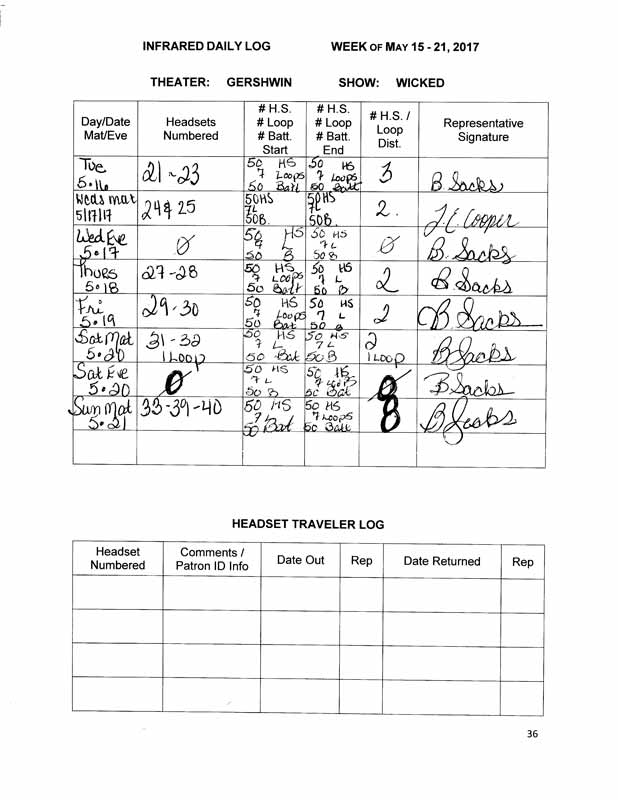 INFRARED DAILY LOG WEEK OF MAY 15 - 21, 2017
THEATER: GERSHWIN SHOW: WICKED
Day/Date Mat/Eve Headsets Numbered # H.S. # Loop # Batt. Start # H.S. # Loop # Batt. End # H.S. / Loop Dist. Representative Signature
Tue 5.16 21-23 50 HS 7 Loops 50 Batt 50 HS 7 Loops 50 Batt 3 B Sacks
Weds mat 5/17/17 24 & 25 50HS 7L 50B. 50HS 7L 50B. 2. J.C. Cooper
Wed Eve 5.17 0 50 HS 7 L 50 B 50 HS 7 L 50 B 0 B. Sacks
Thurs 5.18 27-28 50 HS 7 Loops 50 Batt 50 HS 7 L 50 B 2 B Sacks
Fri 5.19 29-30 50 HS 7 Loops 50 Bat 50 HS 7 L 50 B 2 B Sacks
Sat Mat 5.20 31-32 1 Loop 50 HS 7 L 50 Bat 50 HS 7 L 50 B 2 1 Loop B Sacks
Sat Eve 5.20 0 50 HS 7 L 50 B 50 HS 7 Loops 50 Bat 0 B Sacks
Sun Mat 5.21 33-39-40 50 HS 7 L 50 Bat 50 HS 7 Loops 50 Batt 8 B Sacks
HEADSET TRAVELER LOG
Headset Numbered Comments / Patron ID Info Date Out Rep Date Returned Rep
36